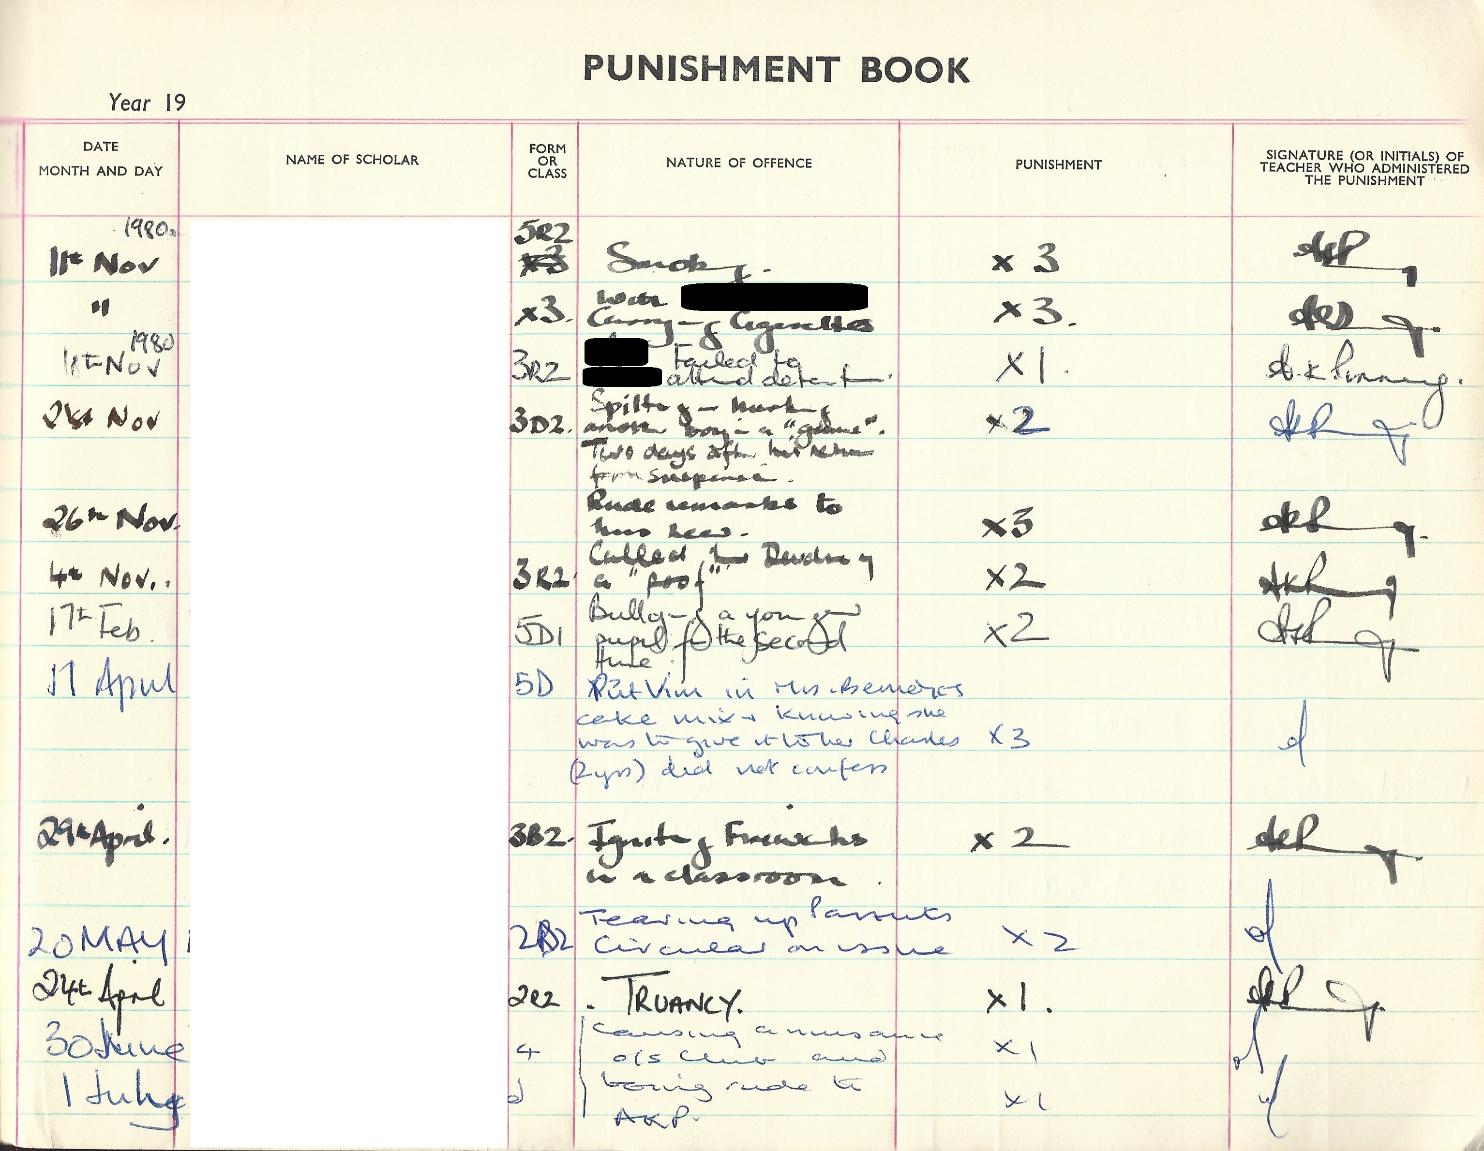 PUNISHMENT BOOK
Year 19
DATE
MONTH AND DAY
NAME OF SCHOLAR
FORM
OR
CLASS
NATURE OF OFFENCE
PUNISHMENT
SIGNATURE (OR INITIALS) OF
TEACHER WHO ADMINISTERED
THE PUNISHMENT
1980.
11th Nov
5R2
Smoking.
x 3
"
x3.
With
Carrying Cigarettes
x 3.
1980
11th Nov
3R2
Failed to
attend detention.
x 1.
Nov
3D2.
Spitting - hurting
another boy in a "game".
Two days after his return
from suspension.
x2
26th Nov.
Rude remarks to
x3
4th Nov..
3R2
Called
a "poof"
x2
17th Feb.
5D1
Bullying a younger
pupil for the second
time.
x2
17 April
5D
Put Vim in Mrs.
cake mix knowing she
was to give it to her Charles
(2yrs) did not confess
x3
29th April.
3B2.
Igniting Fireworks
in a classroom.
x 2
20 MAY
2B2
Tearing up Parents
Circular on issue
x 2
24th April
2R2
. TRUANCY.
x1.
30 June
4
Causing a nuisance
o/s Club and
x1
1 July
being rude to
AKP.
x1